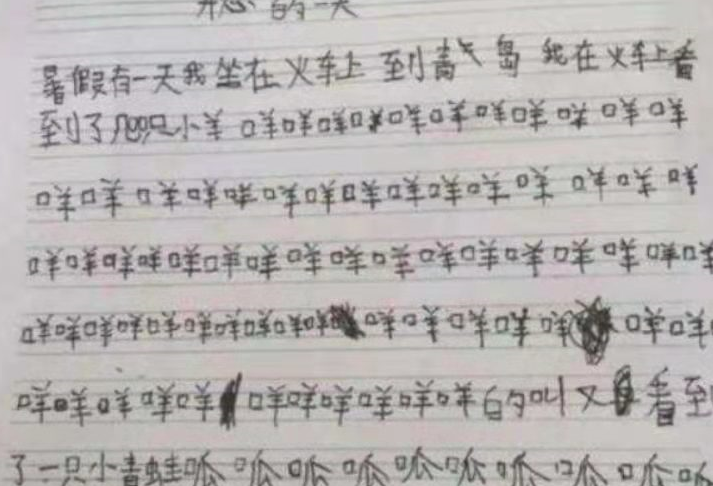 开心的一天
暑假有一天我坐在火车上到青岛我在火车上看
到了几只小羊咩咩咩咩咩咩咩咩咩咩咩
咩咩咩咩咩咩咩咩咩咩咩咩咩咩咩
咩咩咩咩咩咩咩咩咩咩咩咩咩咩咩咩咩
咩咩咩咩咩咩咩咩咩咩咩咩咩咩咩咩咩
咩咩咩咩咩咩咩咩咩咩咩的叫又看到
了一只小青蛙呱呱呱呱呱呱呱呱呱呱